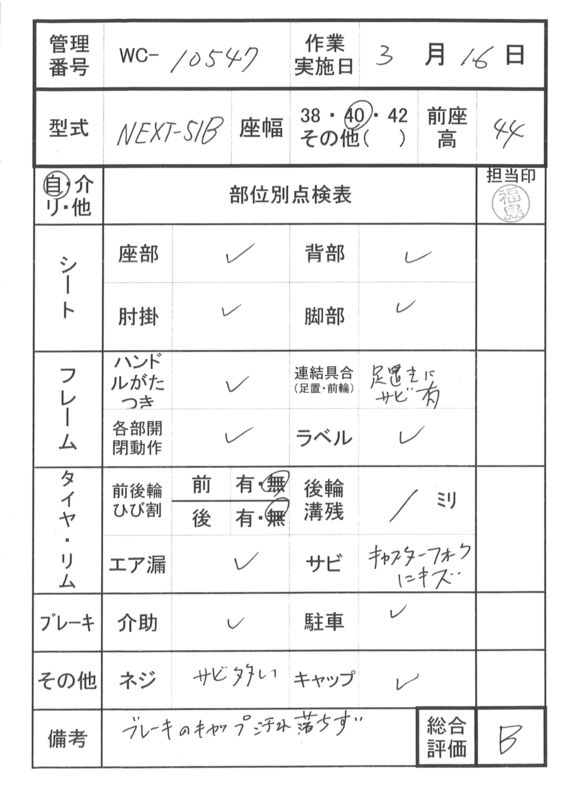 管理番号 WC-10547 作業実施日 3月16日
型式 NEXT-51B 座幅 38・40・42 その他( ) 前座高 44
自・介 リ・他 部位別点検表 担当印 福島
シート 座部 ✓ 背部 ✓
肘掛 ✓ 脚部 ✓
フレーム ハンドルがたつき ✓ 連結具合(足置・前輪) サビ有
各部開閉動作 ✓ ラベル ✓
タイヤ・リム 前後輪ひび割 前 有・無 後輪溝残 / ミリ
後 有・無
エア漏 ✓ サビ キャスターフォークにキズ
ブレーキ 介助 ✓ 駐車 ✓
その他 ネジ サビ多い キャップ ✓
備考 ブレーキのキャップ汚れ落ちず 総合評価 B